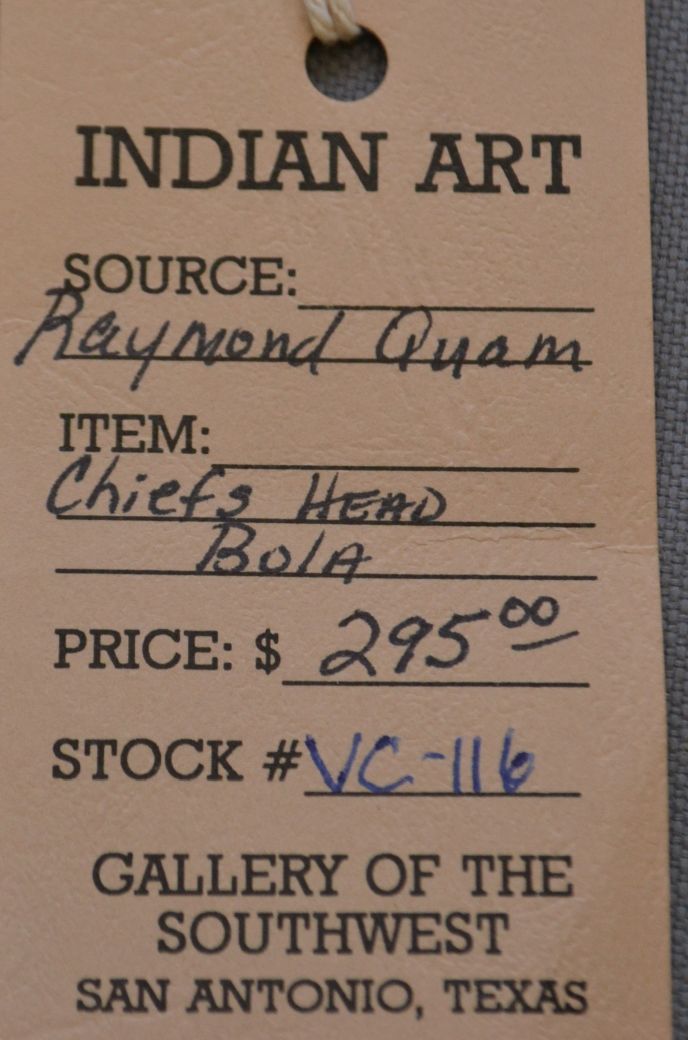 INDIAN ART
SOURCE:
Raymond Quam
ITEM:
Chiefs HEAD
BolA
PRICE: $ 295 00
STOCK # VC-116
GALLERY OF THE
SOUTHWEST
SAN ANTONIO, TEXAS